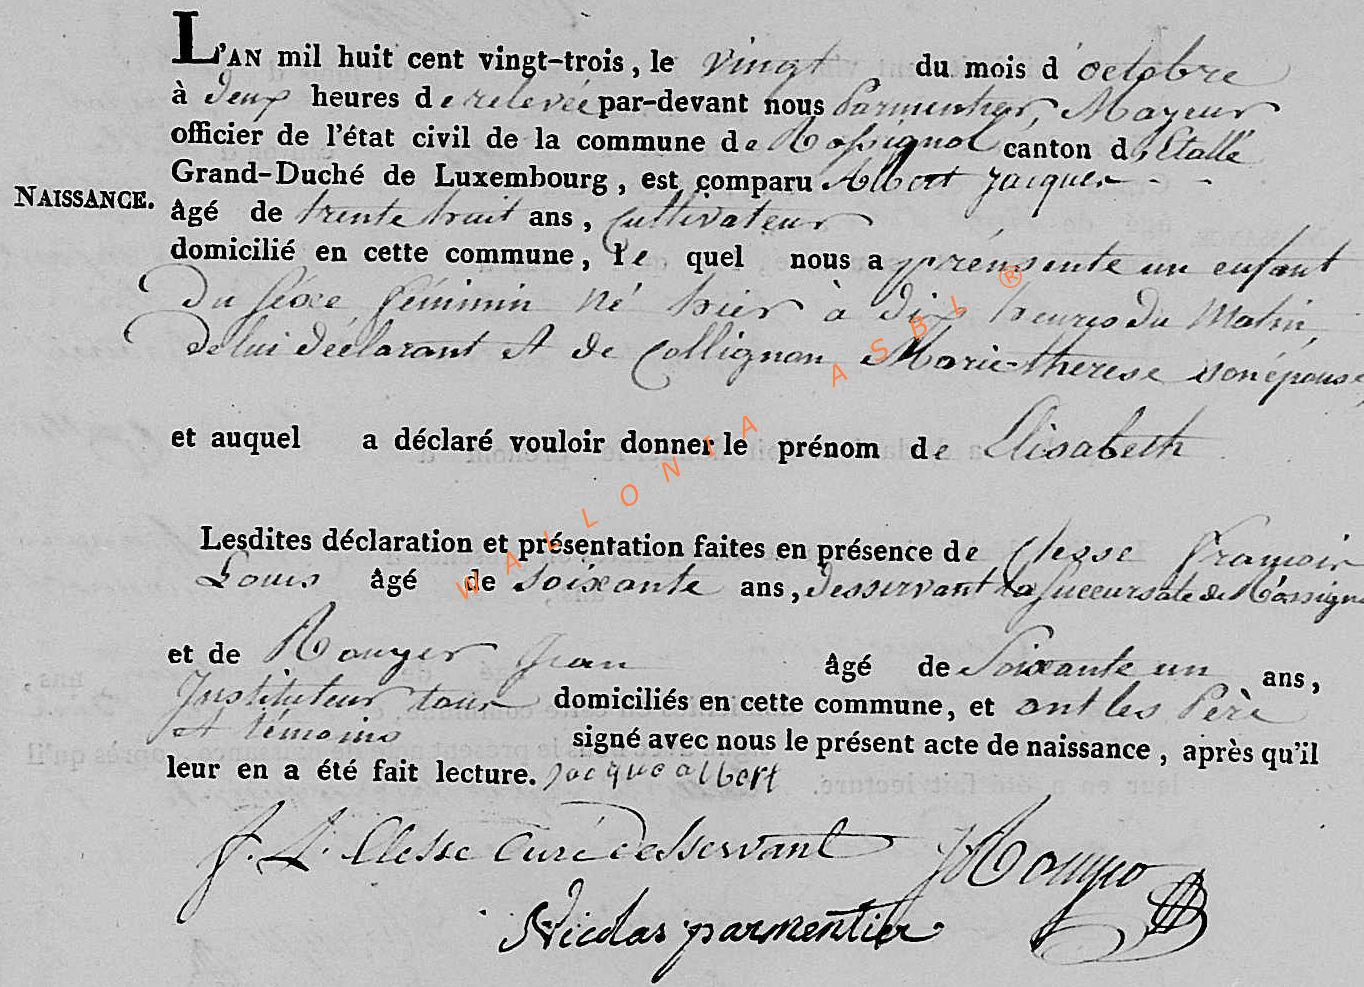 L'AN mil huit cent vingt-trois, le vingt du mois d'octobre
à deux heures de relevée par-devant nous Parmentier, Mayeur
officier de l'état civil de la commune de Rossignol canton d'Etalle
Grand-Duché de Luxembourg, est comparu Albert Jacques
NAISSANCE.
âgé de trente huit ans, cultivateur
domicilié en cette commune, le quel nous a présente un enfant
du sexe féminin né hier à dix heures du matin,
de lui déclarant et de Collignon Marie-therese son épouse,
et auquel a déclaré vouloir donner le prénom de Elisabeth
Lesdites déclaration et présentation faites en présence de Clesse francois
Louis âgé de soixante ans, desservant la succursale de Rossignol
et de Rouyer Jean âgé de soixante un ans,
Instituteur tous domiciliés en cette commune, et ont les Père
et témoins signé avec nous le présent acte de naissance, après qu'il
leur en a été fait lecture. jacque albert
f. L. Clesse Curé desservant J Rouyer
Nicolas parmentier
WALLONIA ASBL ®